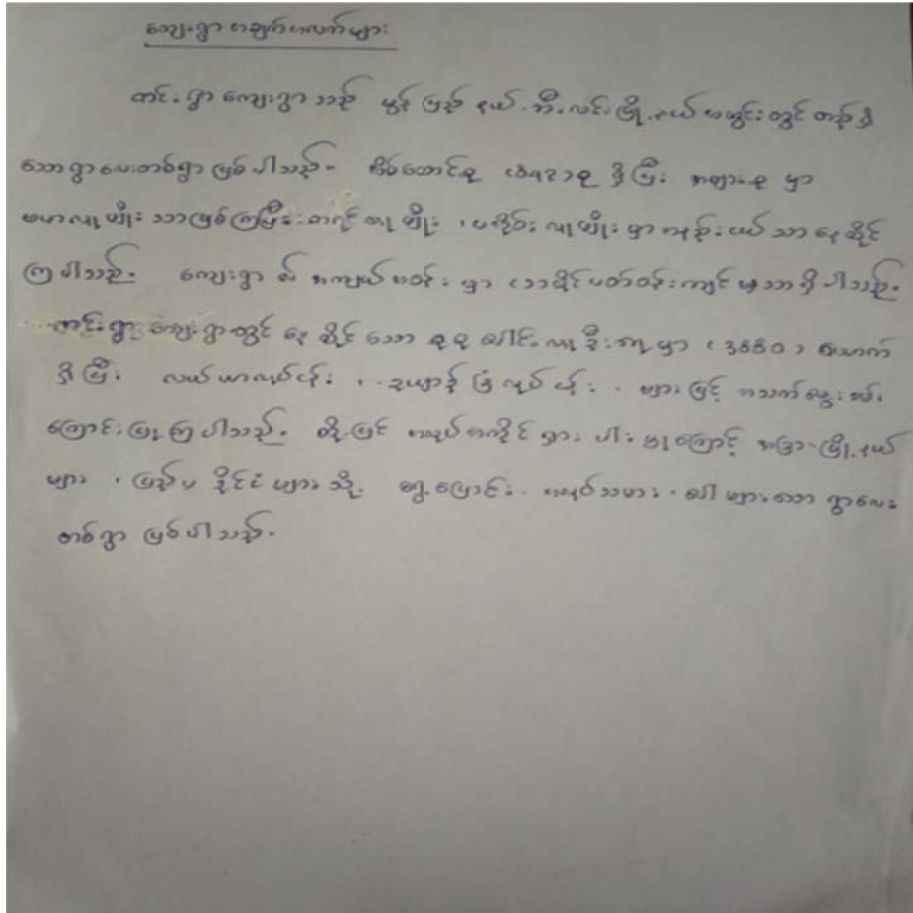 ကျေးရွာ အချက်အလက်များ
တင်းရွာ ကျေးရွာ သည် မွန် ပြည် နယ် ဘီးလင်း မြို့နယ် အတွင်း တွင် တည် ရှိ
သော ရွာလေးတစ်ရွာ ဖြစ်ပါသည်။ အိမ်ထောင်စု ရှိပြီး အများစု မှာ
ဗမာလူမျိုး သာဖြစ်ကြပြီး ကရင် လူမျိုး ၊ ပအိုဝ်း လူမျိုး မှာ အနည်းငယ် သာ နေ ထိုင်
ကြပါသည်။ ကျေးရွာ ၏ အကျယ်အဝန်း မှာ ပတ်ဝန်းကျင် မျှသာ ရှိ ပါသည်။
တင်းရွာ ကျေးရွာတွင် နေ ထိုင် သော စုစု ပေါင်း လူဦးရေ မှာ (3680) ယောက်
ရှိ ပြီး လယ်ယာလုပ်ငန်း ၊ ဥယျာဉ် ခြံ လုပ် ငန်း ၊ များ ဖြင့် အသက်မွေး ဝမ်း
ကြောင်းပြု ကြ ပါသည်။ ထို့ပြင် အလုပ်အကိုင် ရှား ပါး မှုကြောင့် အခြား မြို့နယ်
များ ၊ ပြည်ပ နိုင်ငံ များ သို့ ရွှေ့ပြောင်း အလုပ်သမား ပေါ များသော ရွာလေး
တစ်ရွာ ဖြစ်ပါသည်။